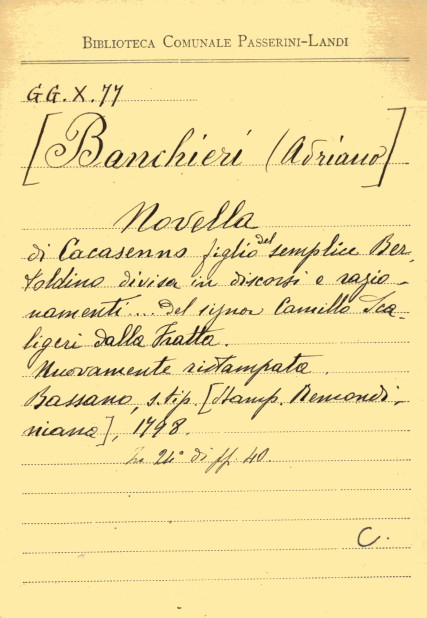 BIBLIOTECA COMUNALE PASSERINI-LANDI
GG.X.77
[Banchieri (Adriano)]
Novella
di Cacasenno figlio del semplice Ber,
toldino divisa in discorsi e ragio,
namenti ... del signor Camillo Sca-
ligeri dalla Fratta.
Nuovamente ristampata.
Bassano, s. tip. [Stamp. Remondi,
niana], 1798.
In 24° di pp. 40.
C.